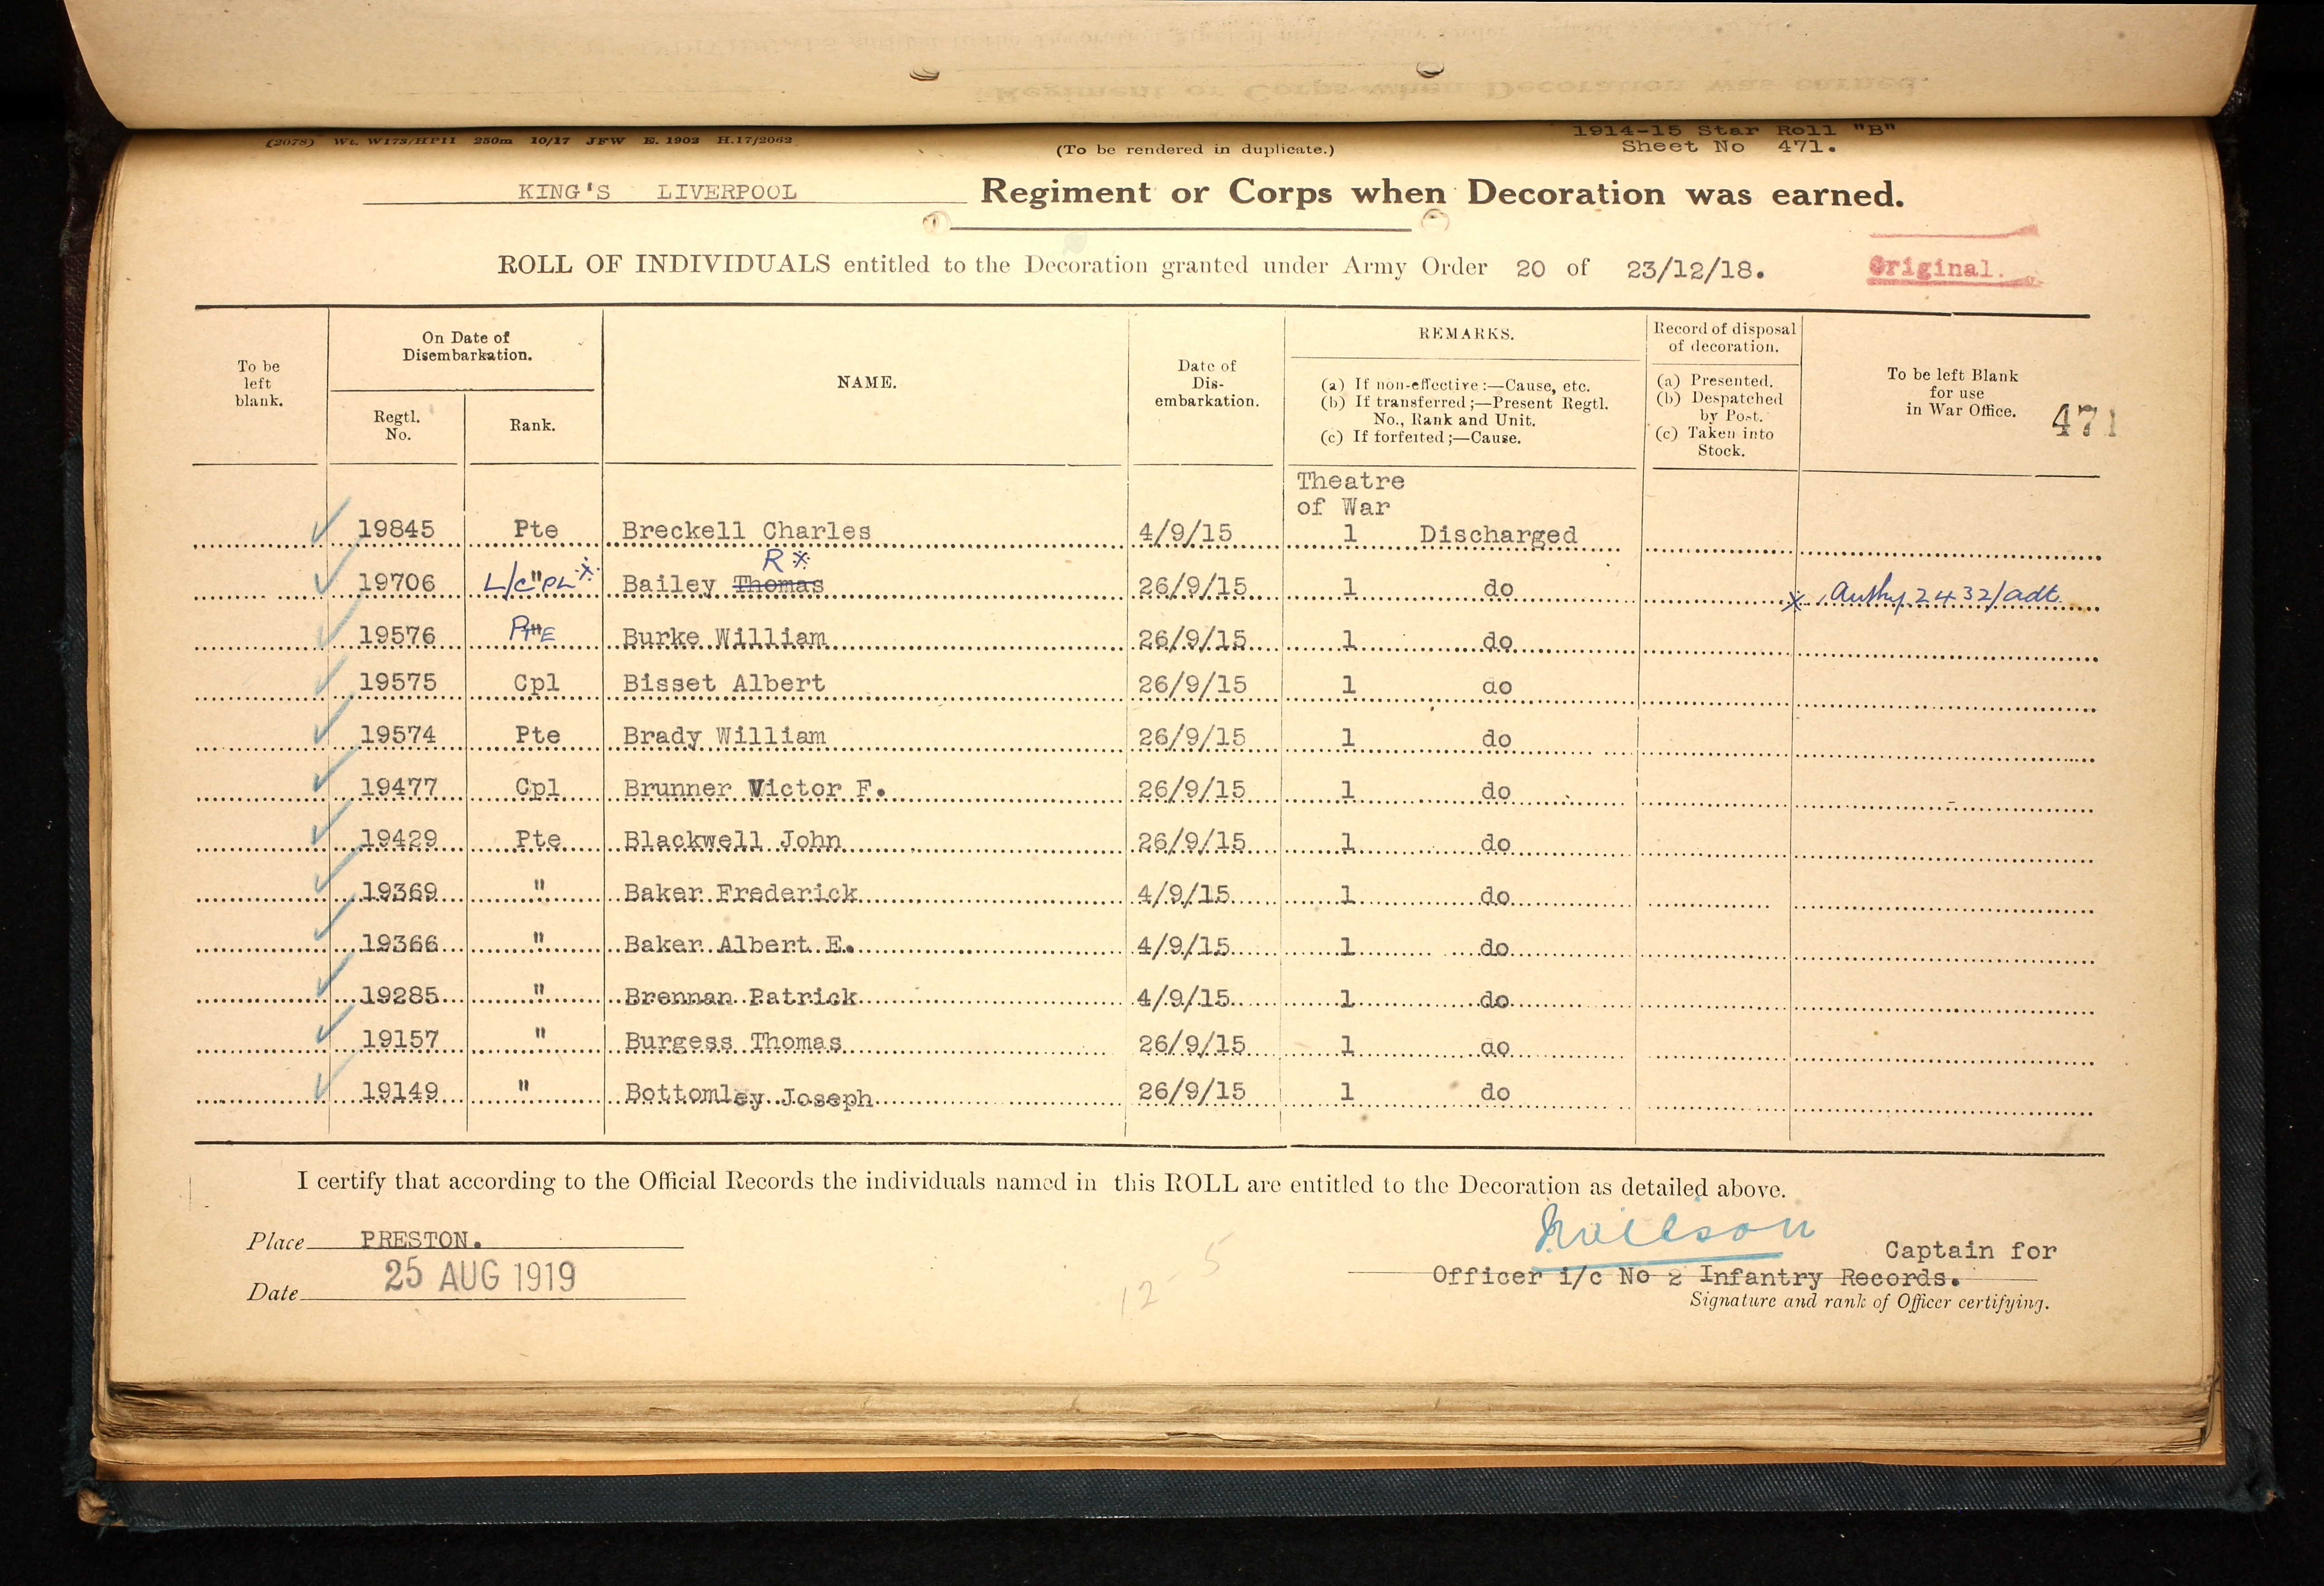 (2078) Wt. W173/HP11 250m 10/17 JFW E. 1903 H.17/2062
(To be rendered in duplicate.)
1914-15 Star Roll "B"
Sheet No 471.
KING'S LIVERPOOL Regiment or Corps when Decoration was earned.
ROLL OF INDIVIDUALS entitled to the Decoration granted under Army Order 20 of 23/12/18. Original.
To be left blank.
On Date of Disembarkation.
Regtl. No.
Rank.
NAME.
Date of Dis-embarkation.
REMARKS.
(a) If non-effective:—Cause, etc.
(b) If transferred;—Present Regtl. No., Rank and Unit.
(c) If forfeited;—Cause.
Record of disposal of decoration.
(a) Presented.
(b) Despatched by Post.
(c) Taken into Stock.
To be left Blank for use in War Office.
471
Theatre
of War
19845 Pte Breckell Charles 4/9/15 1 Discharged
R *
19706 L/CPL * " Bailey Thomas 26/9/15 1 do * Authy 2432/adt.
19576 PTE " Burke William 26/9/15 1 do
19575 Cpl Bisset Albert 26/9/15 1 do
19574 Pte Brady William 26/9/15 1 do
19477 Cpl Brunner Victor F. 26/9/15 1 do
19429 Pte Blackwell John 26/9/15 1 do
19369 " Baker Frederick 4/9/15 1 do
19366 " Baker Albert E. 4/9/15 1 do
19285 " Brennan Patrick 4/9/15 1 do
19157 " Burgess Thomas 26/9/15 1 do
19149 " Bottomley Joseph 26/9/15 1 do
I certify that according to the Official Records the individuals named in this ROLL are entitled to the Decoration as detailed above.
Place PRESTON.
Date 25 AUG 1919
12-5
Captain for
Officer i/c No 2 Infantry Records.
Signature and rank of Officer certifying.